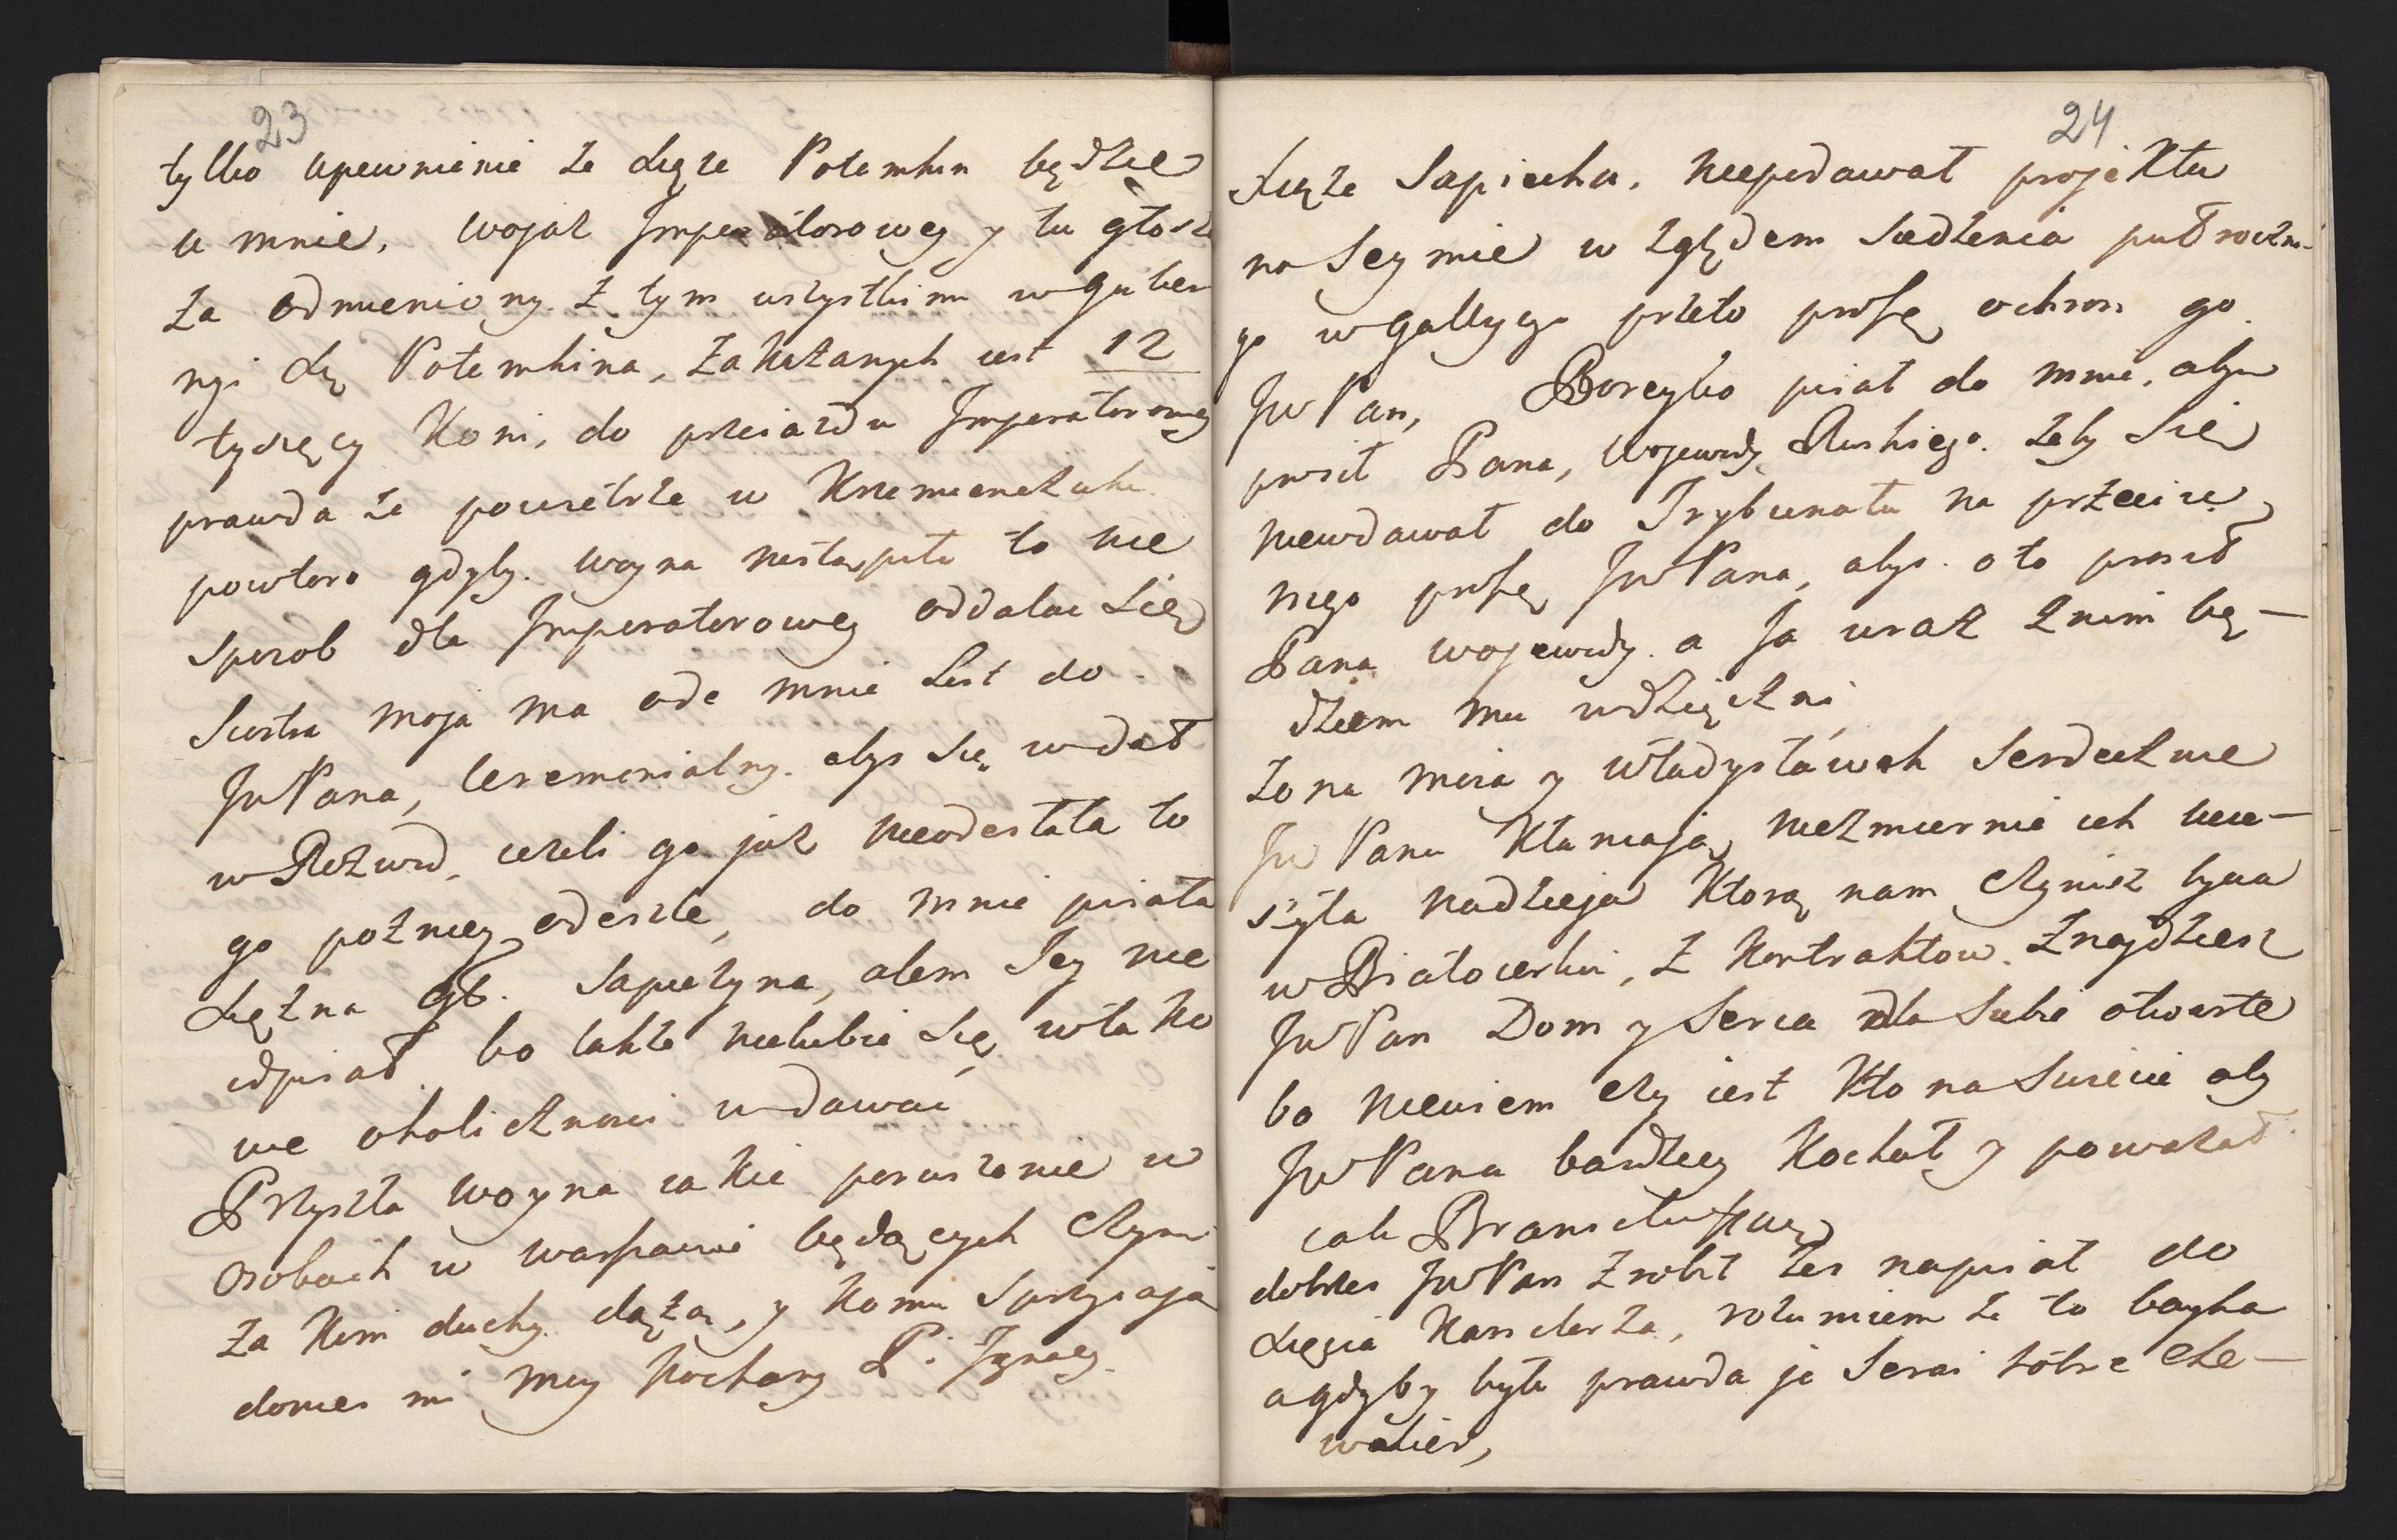 23
tylko upewnienie że Xiąże Potemkin będzie
u mnie, wojaż Imperatorowey y tu głosz
za odmieniony. z tym wszystkim w guber
nji Xię Potemkina, zakazanych iest 12
tysięcy Koni, do przeiazdu Imperatorowey
prawda że powietrze w Krzemienczuku
powtore gdyby. woyna nastąpiła to nie
sposob dla Imperatorowey oddalac się
Siostra moja ma ode mnie List do
JwPana, Ceremonialny. abys się wdał
w Rozwod, ieżeli go już nieodesłała to
go pozniey odeszle, do mnie pisała
Xiężna Gł. Sapieżyna, alem Jey nie
odpisał bo także nielubie się w tako
we okolicznosci wdawać
Przyszła woyna iakie poruszenie w
osobach w warszawie będących Czyni
za Kim duchy. dążą, y Komu Sprzyiają
dones mi moy Kochany P. Ignacy.
24
Xiąże Sapiecha. niepodawał projektu
na Seymie w zględem siedzenia puł roczne-
go w Gallycyi przeto proszę ochron go
JwPan, Boreyko pisał do mnie, abym
prosił Pana, Wojewody Ruskiego. żeby Się
niewdawał do Trybunału na przeciw
niego proszę JwPana, abys. o to prosił
Pana wojewody. a Ja wraz z nim bę-
dziem mu wdzięczni
Żona moia y Władysławek Serdecznie
Jw Panu Kłaniają, niezmiernie ich ucie-
szyła nadzieja Ktorą nam Czynisz bycia
w Białocerkwi, z Kontraktow. znajdziesz
JwPan Dom y Serca dla Siebie otwarte
bo niewiem czy iest Kto na Swiecie aby
JwPana bardziey Kochał y poważał
iak Branicturzny
dobrzes JwPan zrobił żes napisał do
Xięcia Kanclerza, rozumiem że to bayka
a gdyby była prawda je Serai dobre Che-
walier,